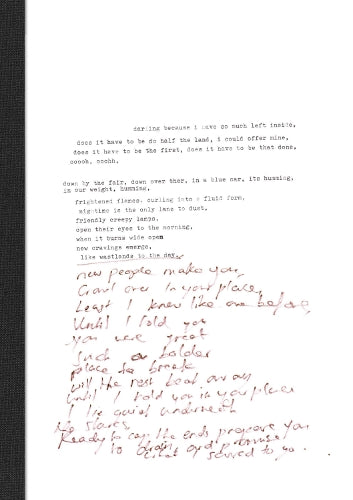 darling because i have so much left inside,
does it have to be do half the land, i could offer mine,
does it have to be the first, does it have to be that done,
ooooh, ooohh.
down by the fair, down over ther, in a blue car, its humming,
in our weight, humming,
frightened flames. curling into a fluid form,
nigtime is the only lane to dust,
friendly creepy lamps,
open their eyes to the morning,
when it burns wide open
new cravings emerge,
like wastlands to the day.
new people make you,
Crawl over in your place,
Least I knew like one before,
Until I told you
you were great
Such a bolder
place to break
will the rest beat away
Until I told you in your place
I lie quiet underneath
the stares
Ready to the ends prepare you
to and promise
sacred to go.